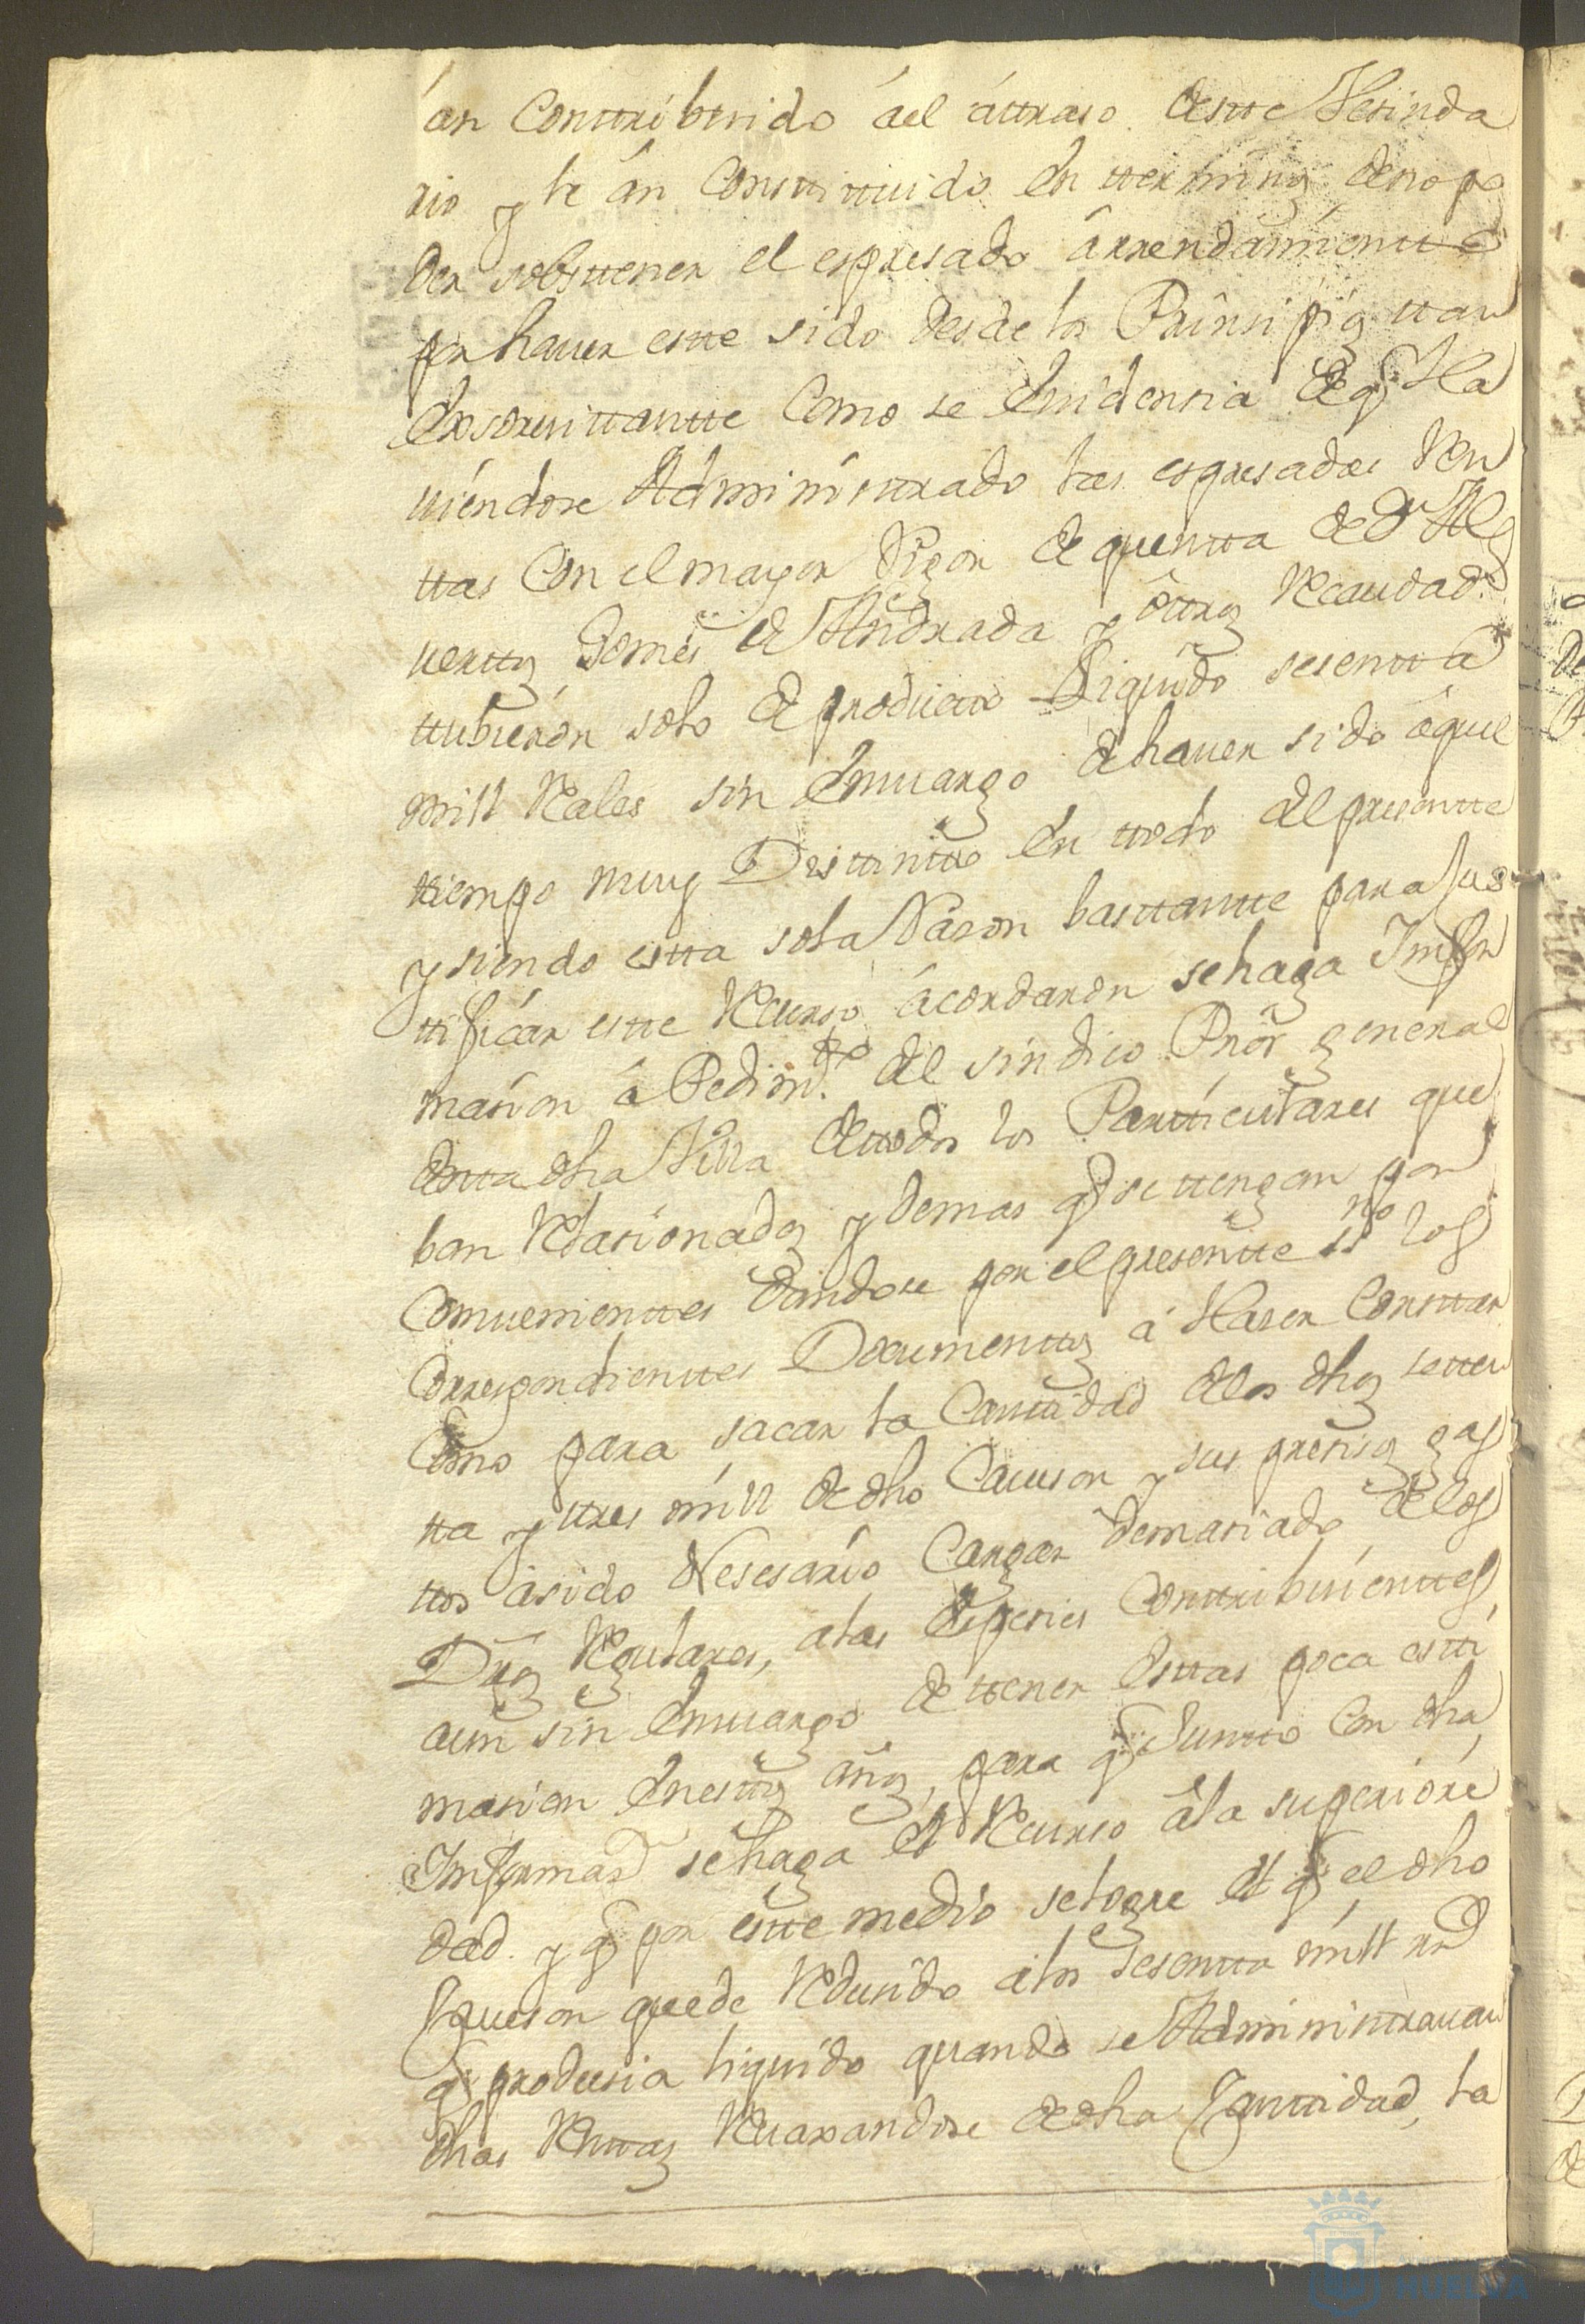 án Conttribuido áel áttraso destte Vesinda
rio y le án Constituido En tterminos deno po
der sobsttener el espresado ârrendamientto
por hauer estte sido desde los Prinsipios ttan
Exsorvittantte Como se Euidensia de q̃ Ha
uiéndose Administrado las espresadas Ren
ttas Con el mayor Rigor de quentta de Dn Al
uertto Gomes de Andrada y ôttros Recaudad.s
ttubierón solo de productto Liquido sesentta
mill Reales sin Emuargo de hauer sido áquel
tiempo muy Disttintto En ttodo del presentte
y siendo estta sola Rason basttantte para Jus
ttificar estte Recurso ácordaron se haga Infor
masion á Pedim.to del sindico Pror general
destta dha Villa dettodos los Partticulares que
ban Relasionados y demas q̃ se ttengan por
Comuenienttes dandose por el presentte ss.no los
Correspondienttes Documenttos á Haser Consttar
Como para sacar la Canttidad delos dhos setten
ta y ttres mill de dho Caueson y sus presisos gas
ttos ásido Nesesário Cargar demasiado de los
Dros Regulares, alas Espesies Conttribuienttes
aun sin Emuargo de ttener Esttas poca estti
masion Enesttos años, para q̃ Juntto Con dha
Informas.n se haga el Recurso âla superiori
dad. y q̃ por estte medio se logre el q̃ el dho
Caueson quede Redusido álos sesentta mill rr.s
q̃ produsia liquido quando se Administrauan
dhas Renttas Reuaxandose dedha Canttidad, la
HUELVA